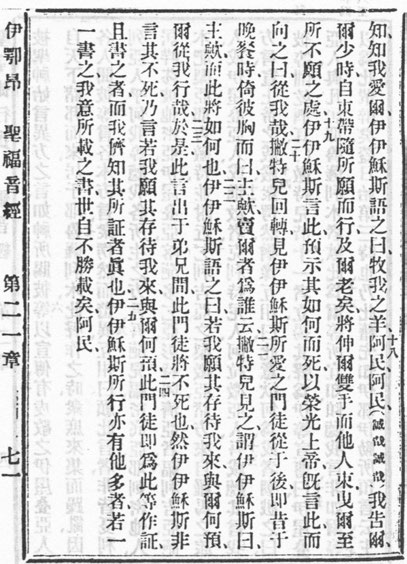 知知我愛爾伊伊穌斯語之曰牧我之羊阿民阿民(誠哉誠哉)我告爾
爾少時自束帶隨所願而行及爾老矣將伸爾雙手而他人束曳爾至
所不願之處伊伊穌斯言此預示其如何而死以榮光上帝旣言此而
向之曰從我哉撇特兒回轉見伊伊穌斯所愛之門徒從于後即昔于
晚餐時倚彼胸而曰主歟賣爾者爲誰云撇特兒見之謂伊伊穌斯曰
主歟而此將如何也伊伊穌斯語之曰若我願其存待我來與爾何預
爾從我行哉於是此言出于弟兄間此門徒將不死也然伊伊穌斯非
言其不死乃言若我願其存待我來與爾何預此門徒即爲此等作証
且書之者而我儕知其所証者眞也伊伊穌斯所行亦有他多者若一
一書之我意所載之書世自不勝載矣阿民
十八
十九
二十
二一
二二
二三
二四
二五
伊鄂昂 聖福音經 第二一章 七一